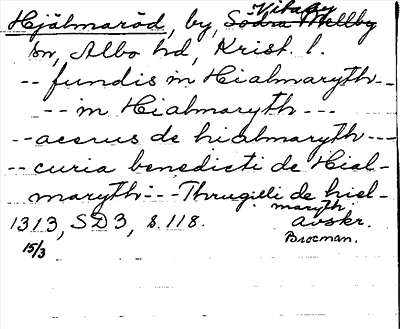 Hjälmaröd, by, Södra Mellby Vitaby
sn, Albo hd, Krist. l.
-- fundis in Hialmaryth --
-- in Hialmaryth ---
-- acerus de hialmaryth ---
-- curia benedicti de Hial-
maryth --- Thrugilli de hiel-
maryth.
1313, SD3, s. 118. Avskr.
15/3 Brocman.